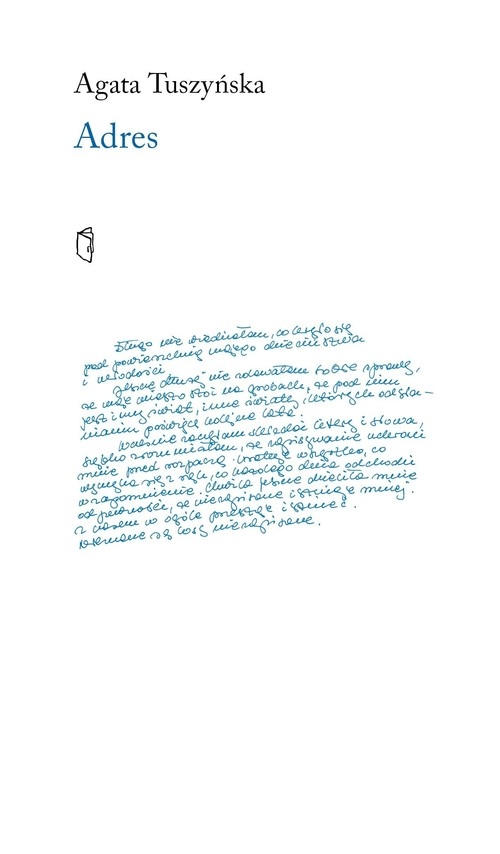 Agata Tuszyńska
Adres
Długo nie wiedziałam, co legło się
pod powierzchnią mojego dzieciństwa
i młodości
Jeszcze dłużej nie zdawałam sobie sprawy,
że moje miasto stoi na grobach, że pod nim
jest inny świat, inne światy, których odsła-
nianiu poświęcę kolejne lata.
Właśnie zaczęłam składać litery i słowa,
szybko zrozumiałam, że zapisywanie uchroni
mnie przed rozpaczą. Ocaleję wszystko, co
wymyka się z rąk, co każdego dnia odchodzi
w zapomnienie. Chwila jeszcze dzieliła mnie
od pewności, że niezapisane istnieje mniej.
z czasem w ogóle przestaje istnieć.
niezapisane.